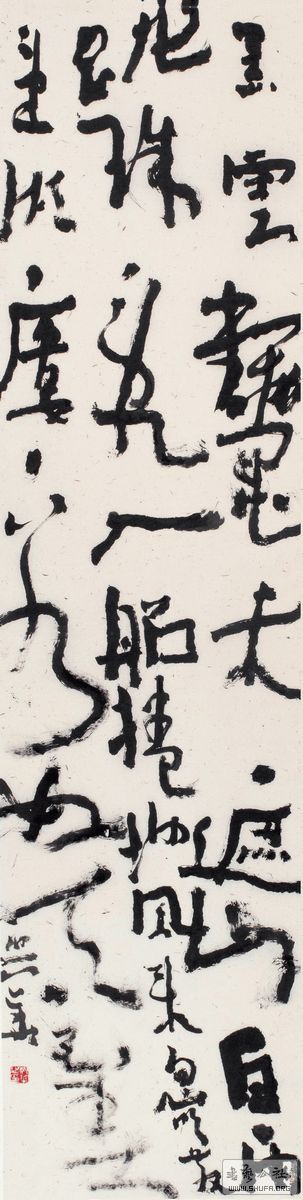 黑雲翻墨未遮山白雨
跳珠亂入船捲地風來忽吹散
望湖樓下水如天
书艺公社
WWW.SHUFA.ORG